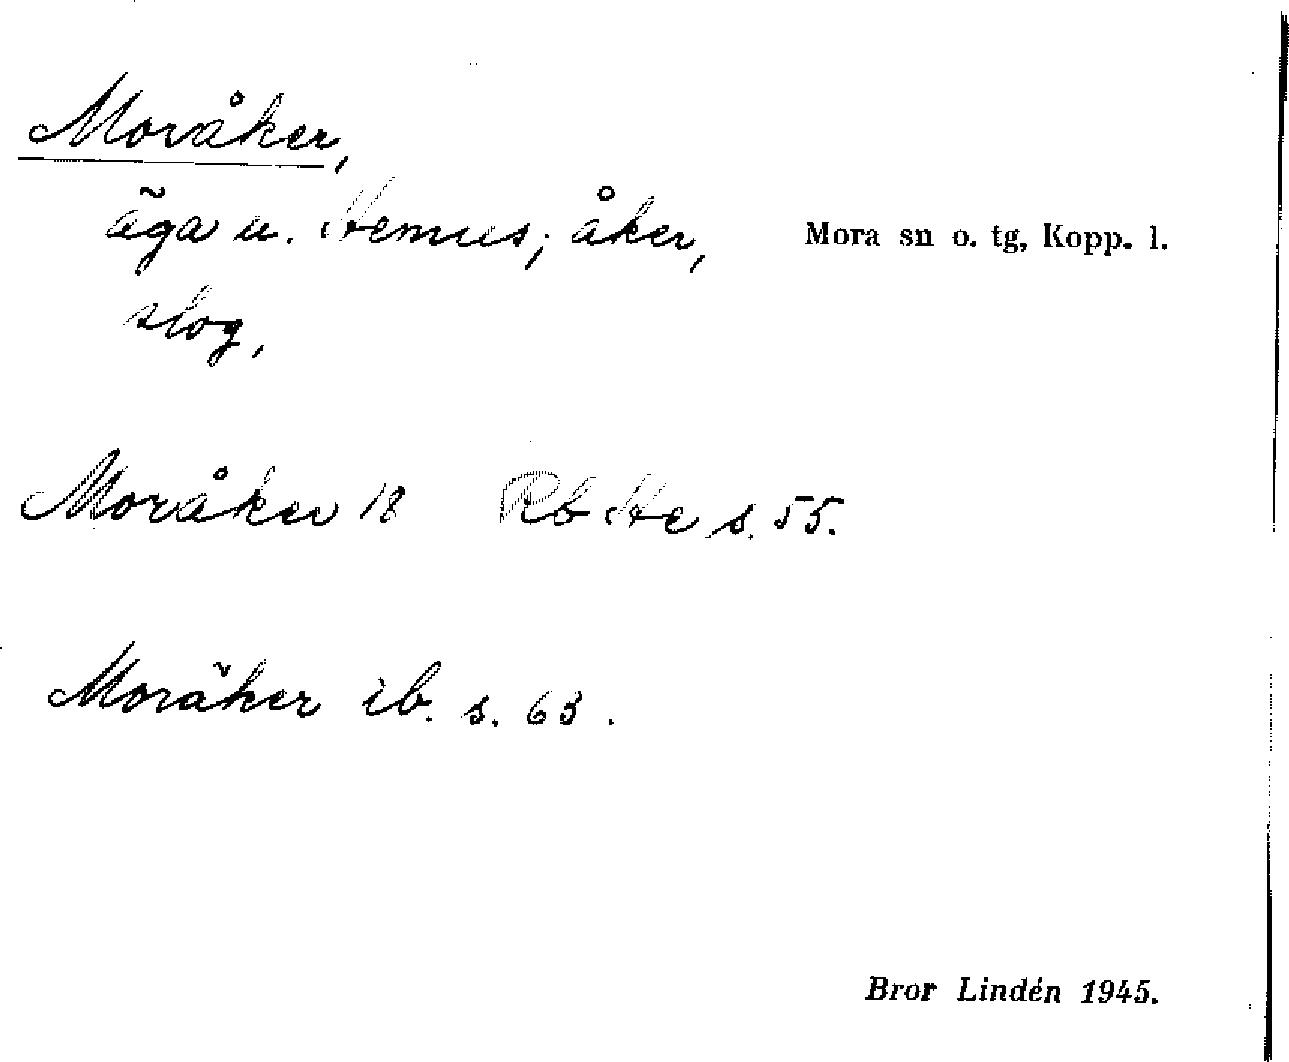 Moråker,
äga u. Hemus; åker, Mora sn o. tg, Kopp. l.
slog,
Moråker 18 Rb He s. 55.
Moräker ib. s. 63.
Bror Lindén 1945.